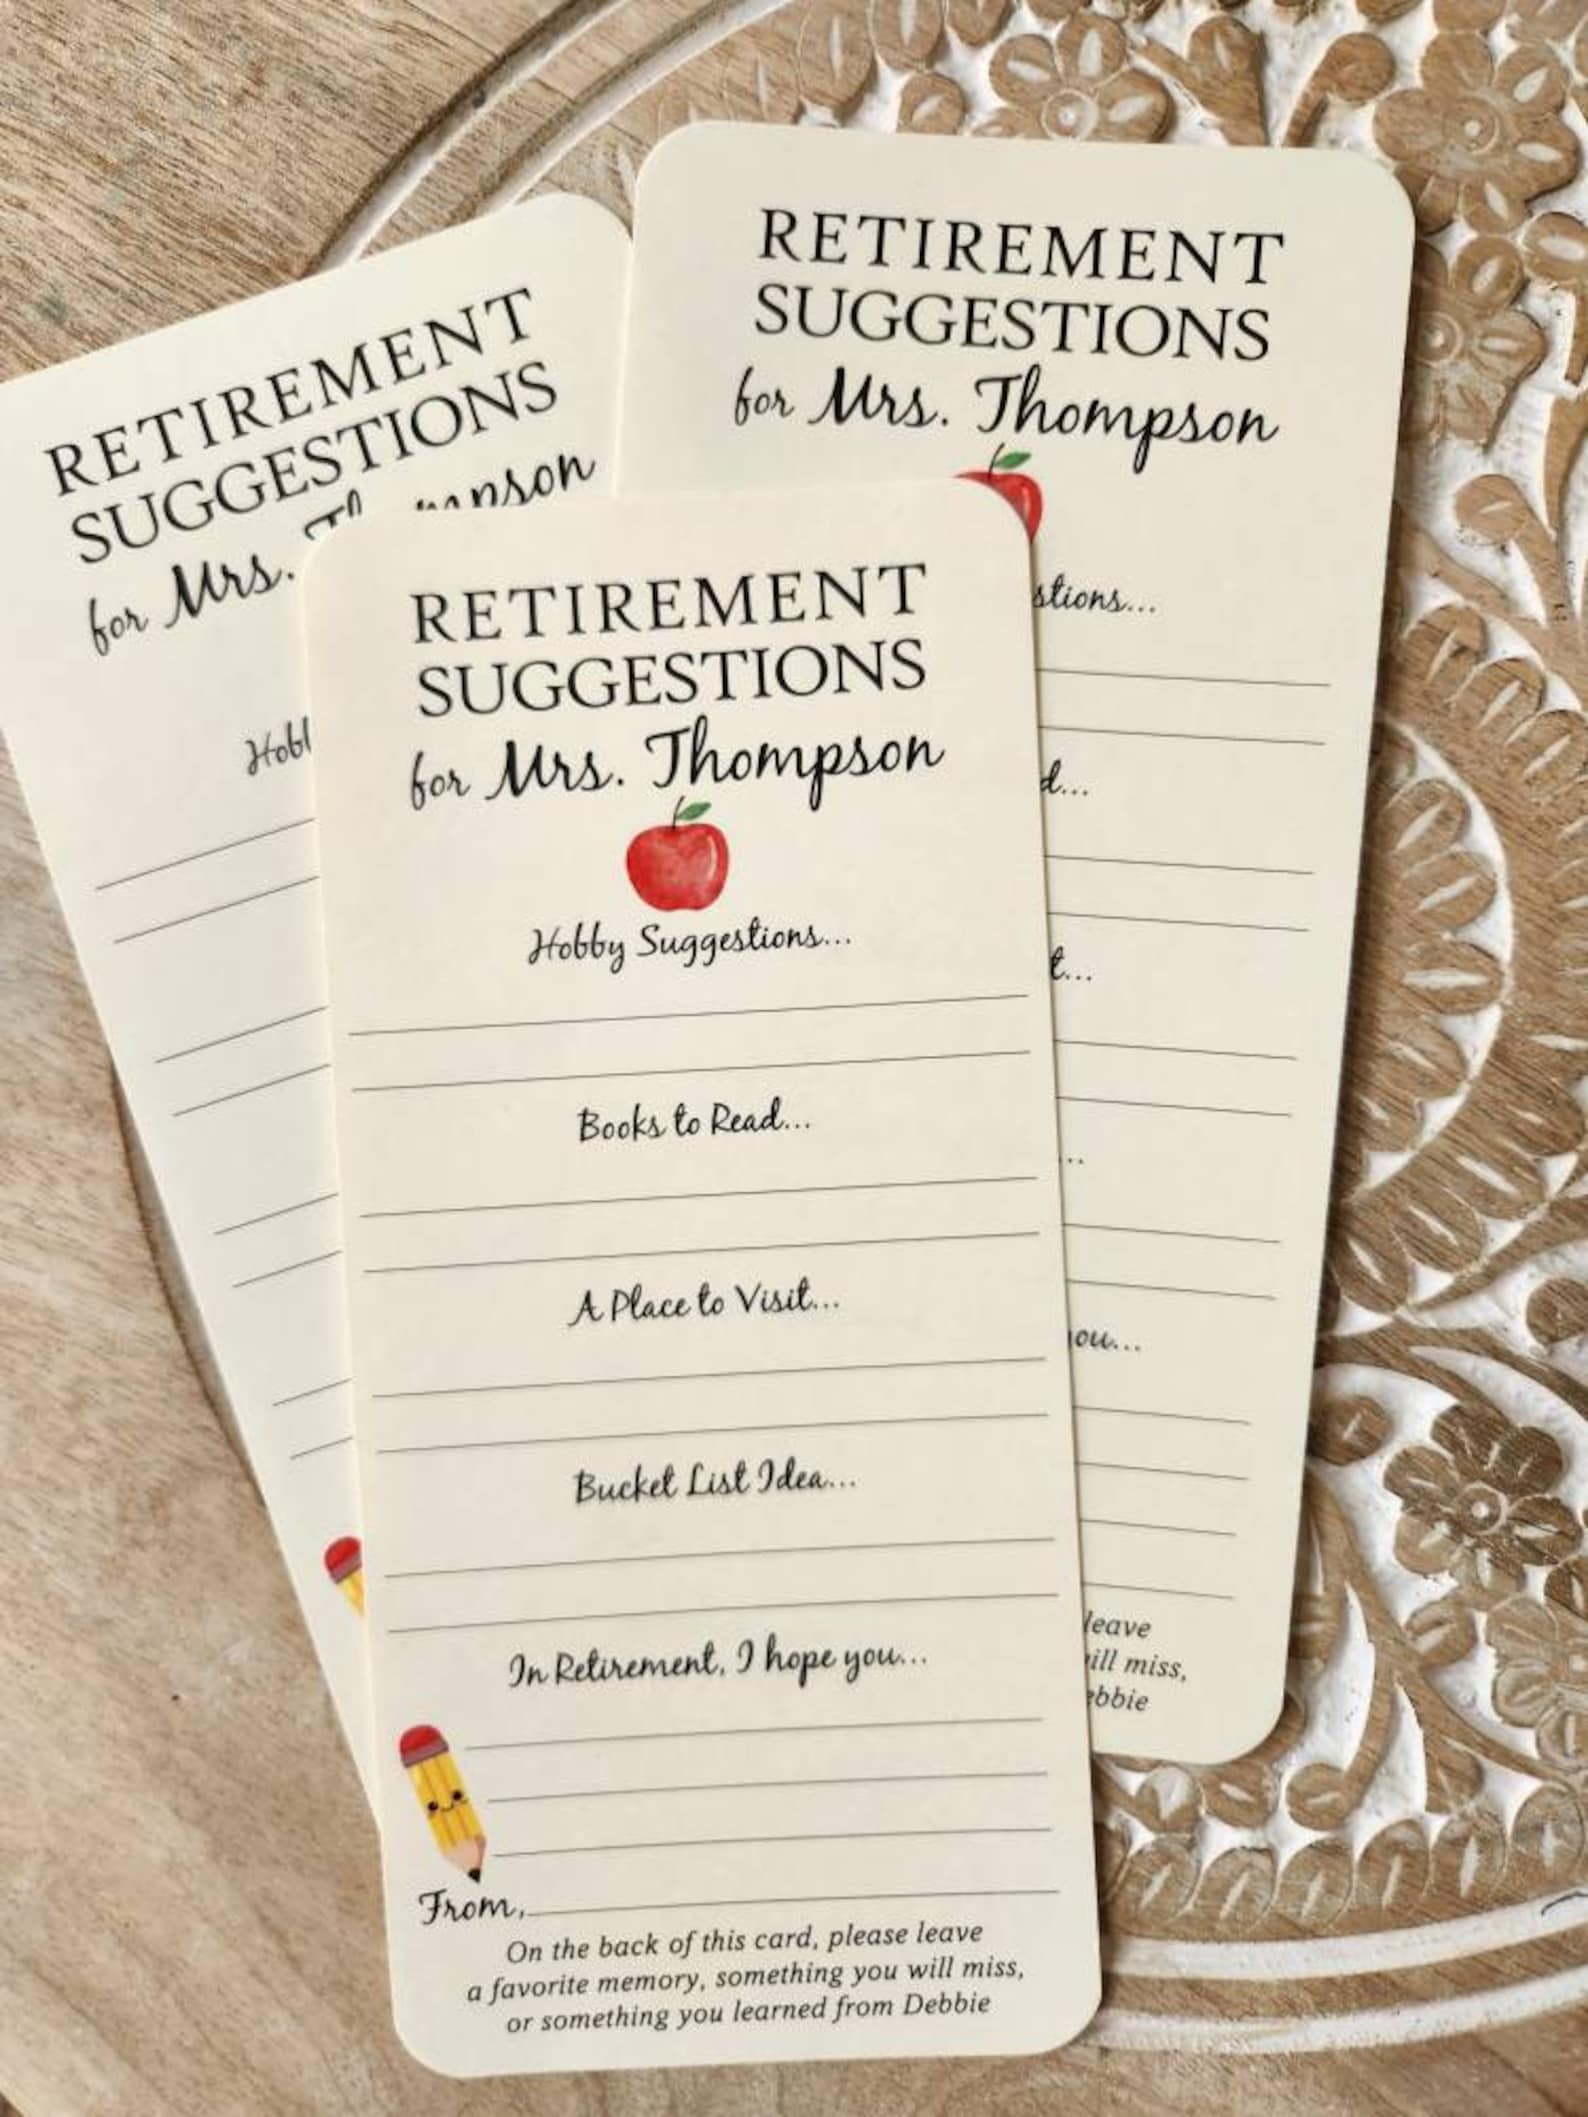 RETIREMENT
SUGGESTIONS
for Mrs.
RETIREMENT
SUGGESTIONS
for Mrs. Thompson
RETIREMENT
SUGGESTIONS
for Mrs. Thompson
Hobby Suggestions...
Books to Read...
A Place to Visit...
Bucket List Idea...
In Retirement, I hope you...
From,
On the back of this card, please leave
a favorite memory, something you will miss,
or something you learned from Debbie
leave
miss,